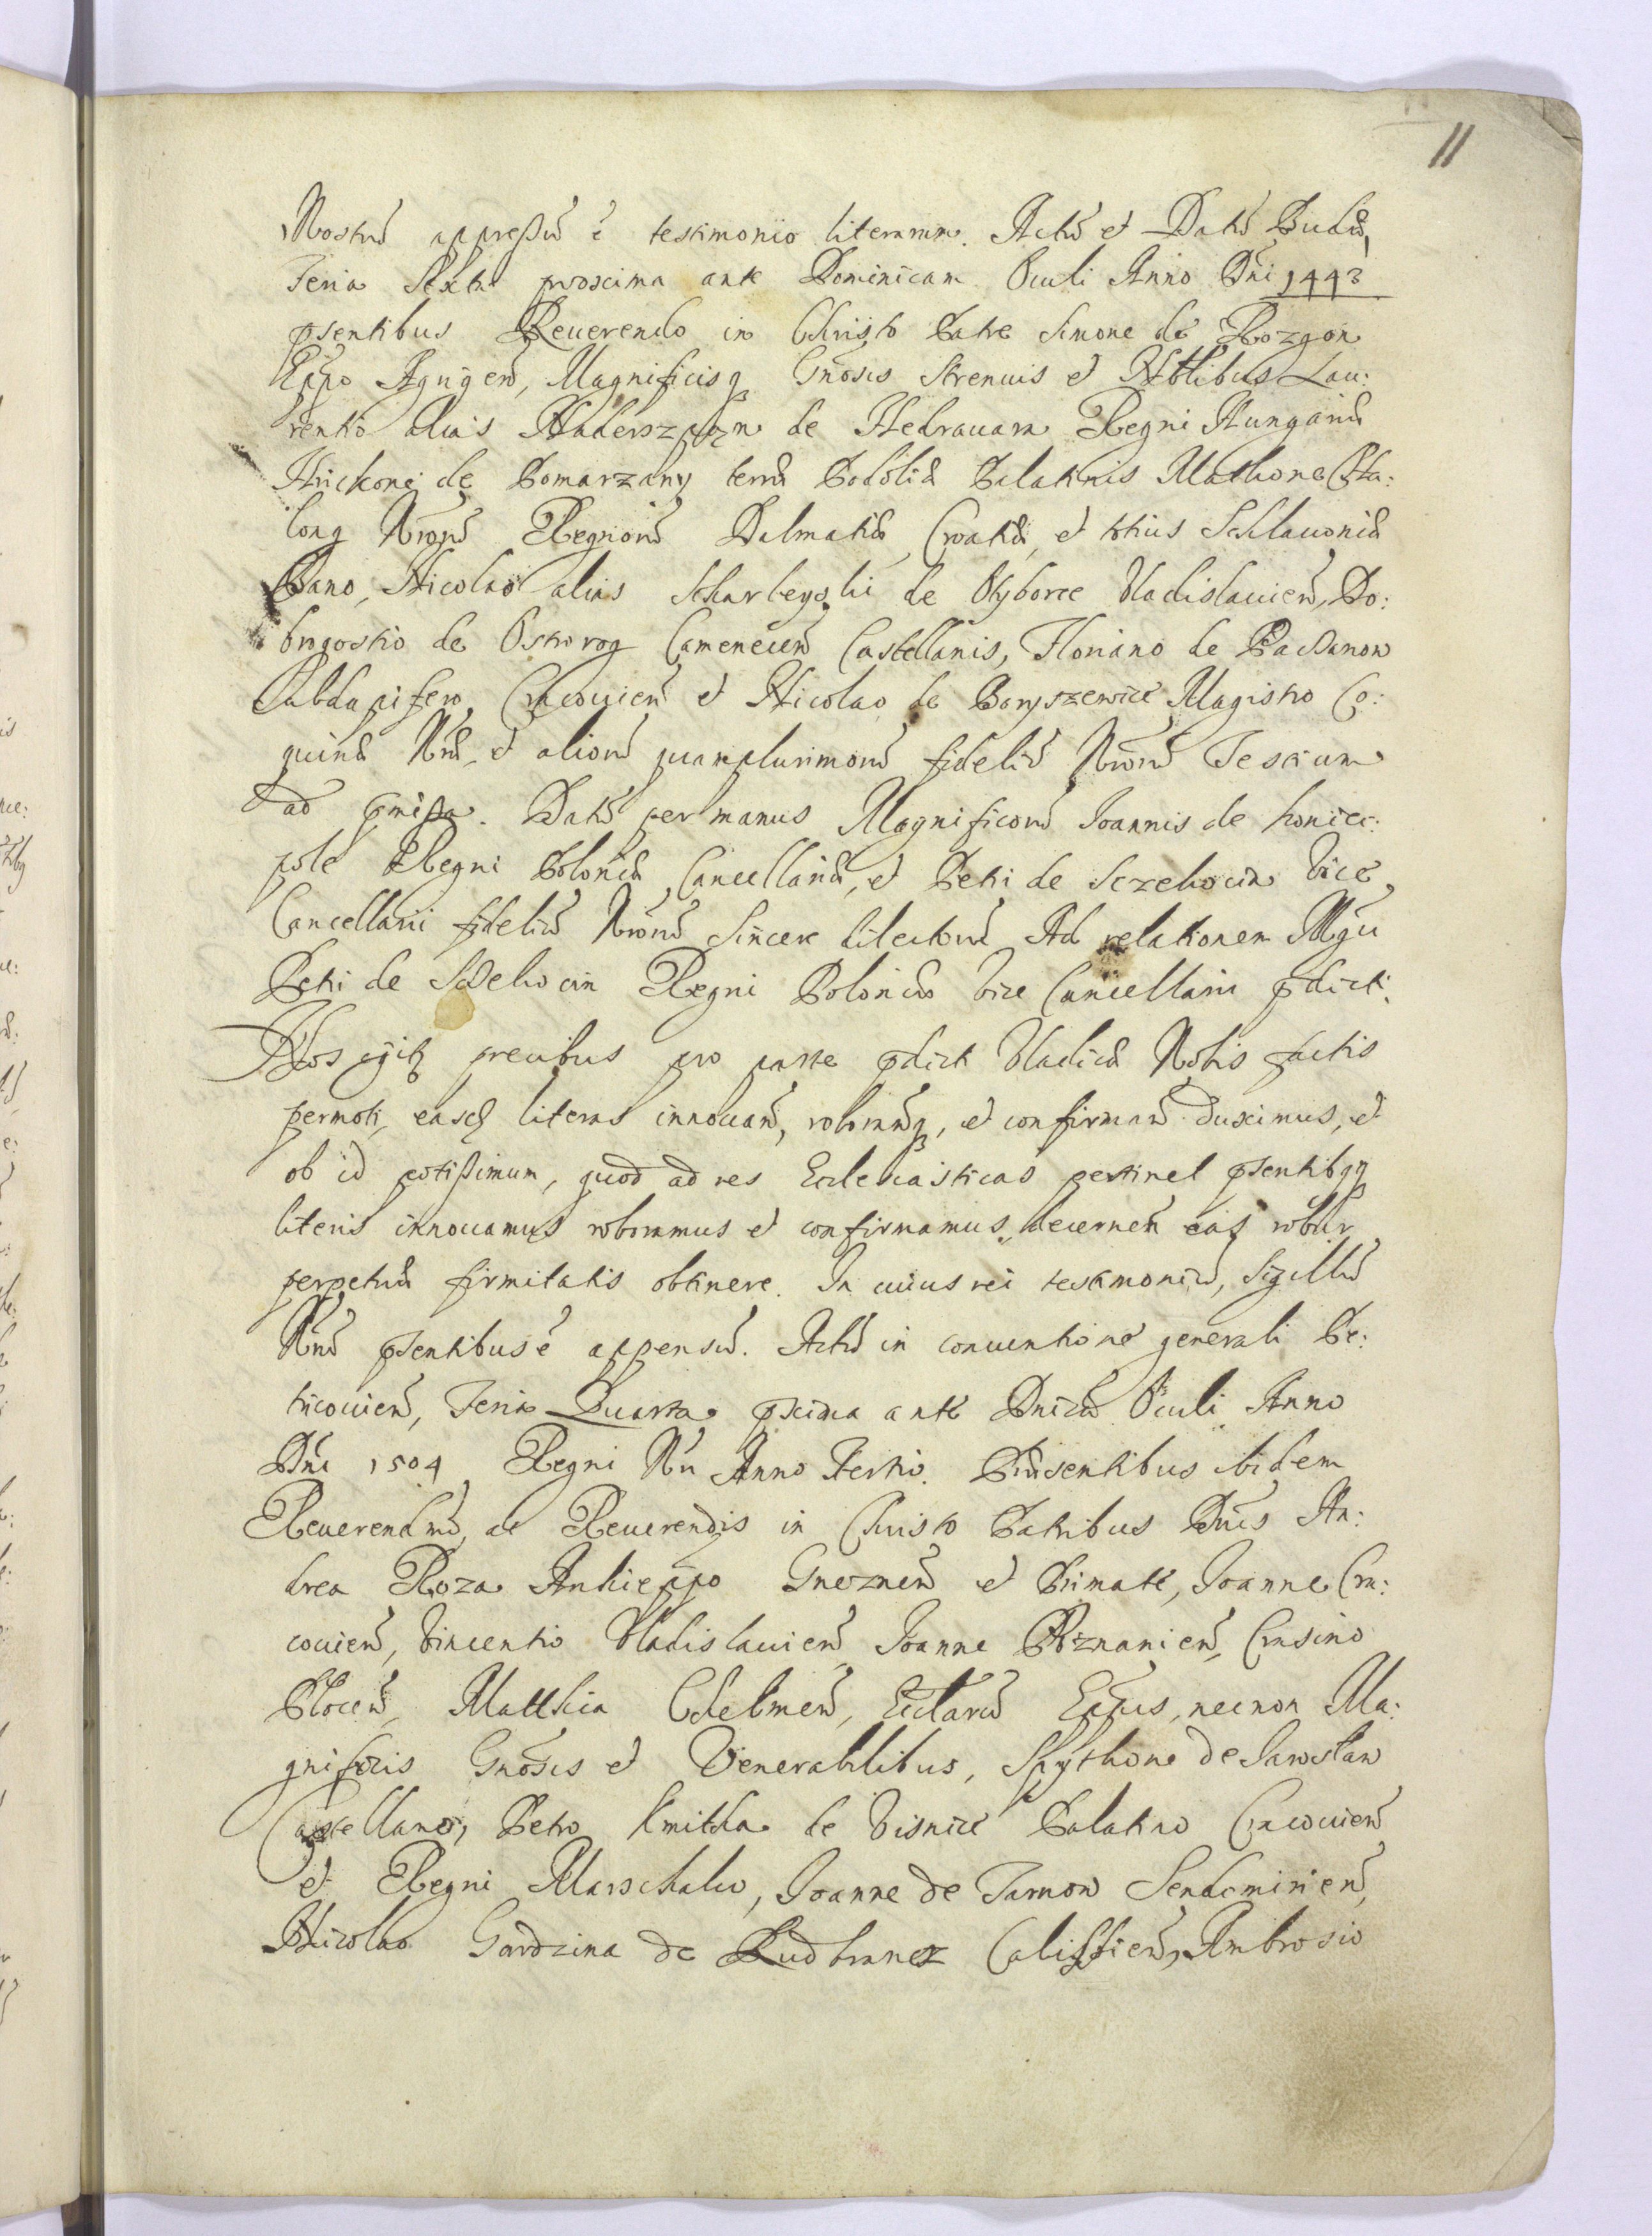 11
Nostrũ appreßũ ẽ testimonio literarum. Actũ et Datũ Budæ,
Feria Sexta proxima ante Dominicam Oculi Anno Dñi 1443
p̃sentibus Reuerendo in Christo Patre Simone de Rozgon
Ep̃po Agrigeñ, Magnificisq Gñosis Strenuis et Nobilibus Lau:
rentio alias Haderszpan de Hedrauara Regni Hungariæ
Hrickone de Pomarzany terræ Podoliæ Palatinis Mathone Tha:
long Nrorũ Regnorũ Dalmatiæ Croatiæ, et totius Schlauoniæ
Bano, Nicolao alias Scharleyski de Vyborce Vladislauieñ, Do:
brogostio de Ostrorog Cameneceñ Castellanis, Floriano de Pacanow
Subdapifero Cracouieñ et Nicolao de Boryszewice Magistro Co:
quinæ Nræ, et aliorũ quamplurimorũ fideliũ Nrorũ Testium
ad p̃mißa. Datũ per manus Magnificorũ Joannis de Koniec:
pole Regni Poloniæ Cancellarii, et Petri de Sczekocin Vice
Cancellarii fideliũ Nrorũ Sincere dilectorũ Ad relationem Mgci
Petri de Scekocin Regni Poloniæ Vice Cancellarii p̃dict:
Nos igitq precibus pro parte p̃dict Vladicæ Nobis factis
permoti, easdẽ literas innouañ, roborañq, et confirmañ duximus, et
ob id potißimum, quod ad res Ecclesiasticas pertinet p̃sentibqq
literis innouamus roboramus et confirmamus, decerneñ eas robur
perpetuæ firmitatis obtinere. In cuius rei testimoniũ, Sigillũ
Nrũ p̃sentibus ẽ appensũ. Actũ in conuentione generali Pe:
tricouieñ, Feria Quarta p̃xima ante Dñicã Oculi Anno
Dñi 1504 Regni Nri Anno Tertio. Præsentibus ibidem
Reuerendmõ, ac Reuerendis in Christo Patribus Dñis An:
drea Roza Archiep̃po Gnezneñ et Primate, Joanne Cra:
couieñ, Vincentio Vladislauieñ Joanne Poznanieñ, Erasmo
Ploceñ, Matthia Chelmeñ, Ecclarũ Ep̃pis, necnon Ma:
gnificis Gñosis et Venerabilibus, Spythone de Jaroslaw
Castellano, Petro Kmitha de Visnice Palatino Cracouieñ
et Regni Marschalco, Joanne de Tarnow Sendomirieñ,
Nicolao Gardzina de Ludbrancz Calissieñ, Ambrosio